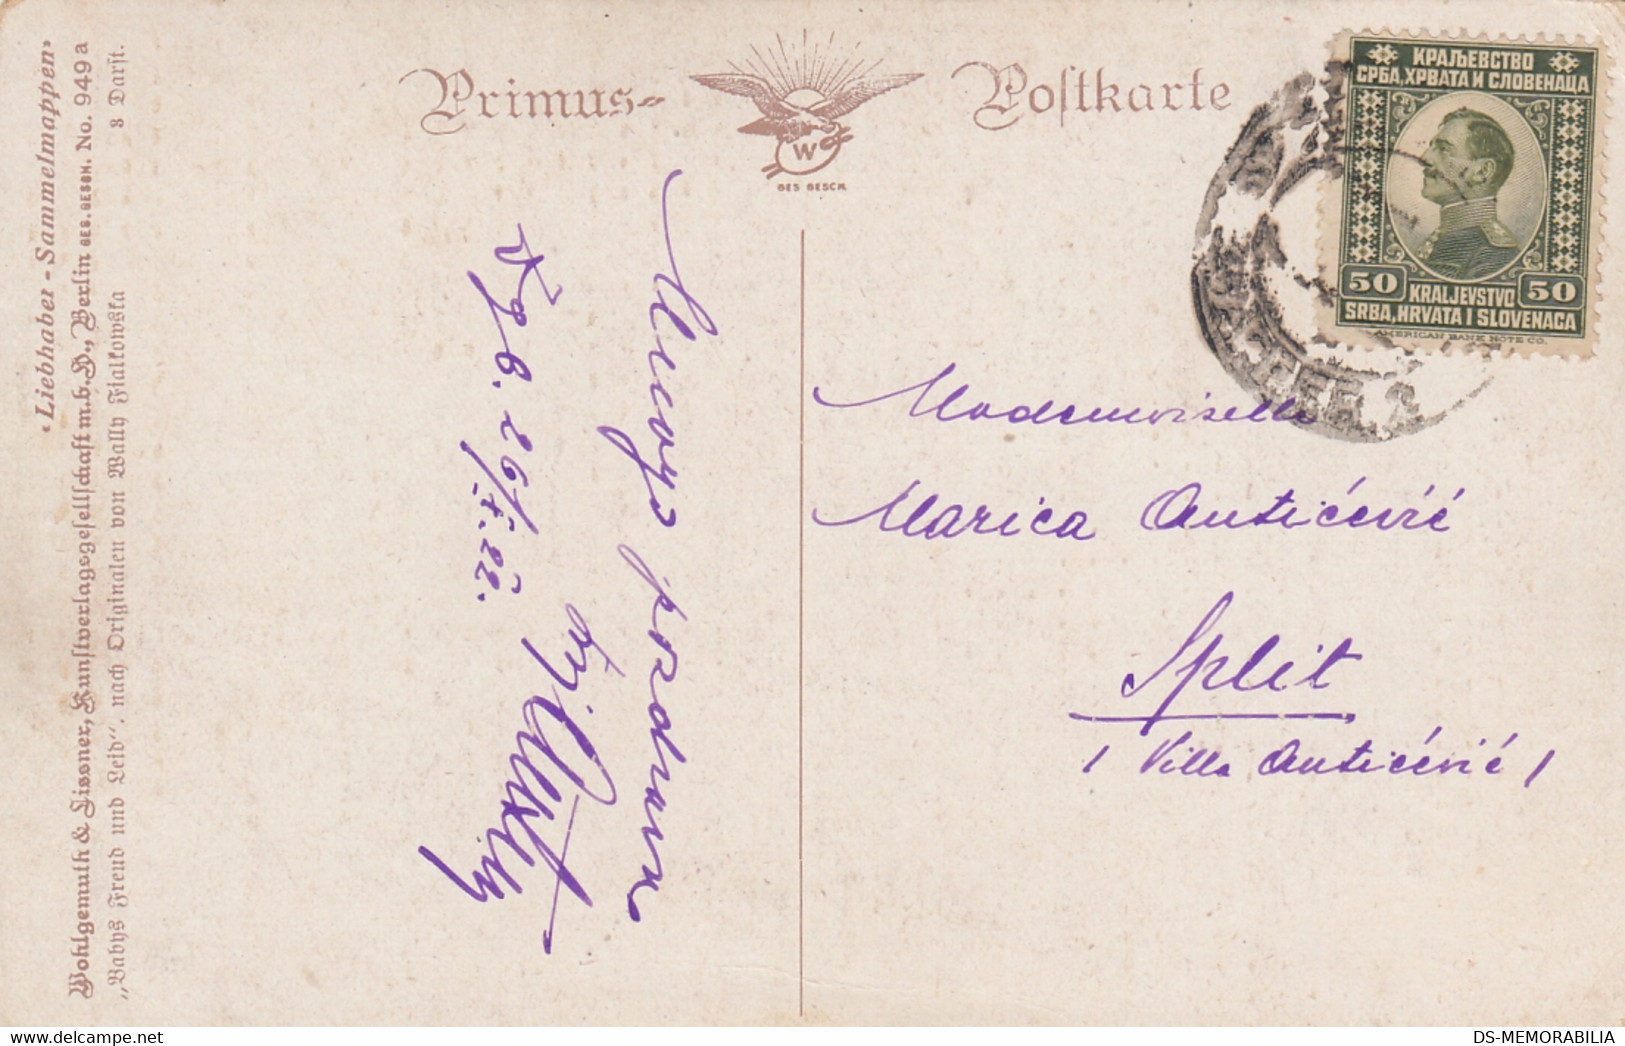 Primus- Postkarte
W
GES GESCH.
КРАЉЕВСТВО
СРБА, ХРВАТА И СЛОВЕНАЦА
50 KRALJEVSTVO 50
SRBA, HRVATA I SLOVENACA
AMERICAN BANK NOTE CO.
«Liebhaber-Sammelmappen»
Wohlgemuth & Lissner, Kunstverlagsgesellschaft m.b.H., Berlin GES. GESCH. No. 949a
„Babys Freud und Leid", nach Originalen von Wally Fialkowska 8 Darst.
Mnogo pozdrava
Zgb. 26/X. 22.
Mademoiselle
Marica Antićević
Split
/ Villa Antićević /
www.delcampe.net
DS-MEMORABILIA